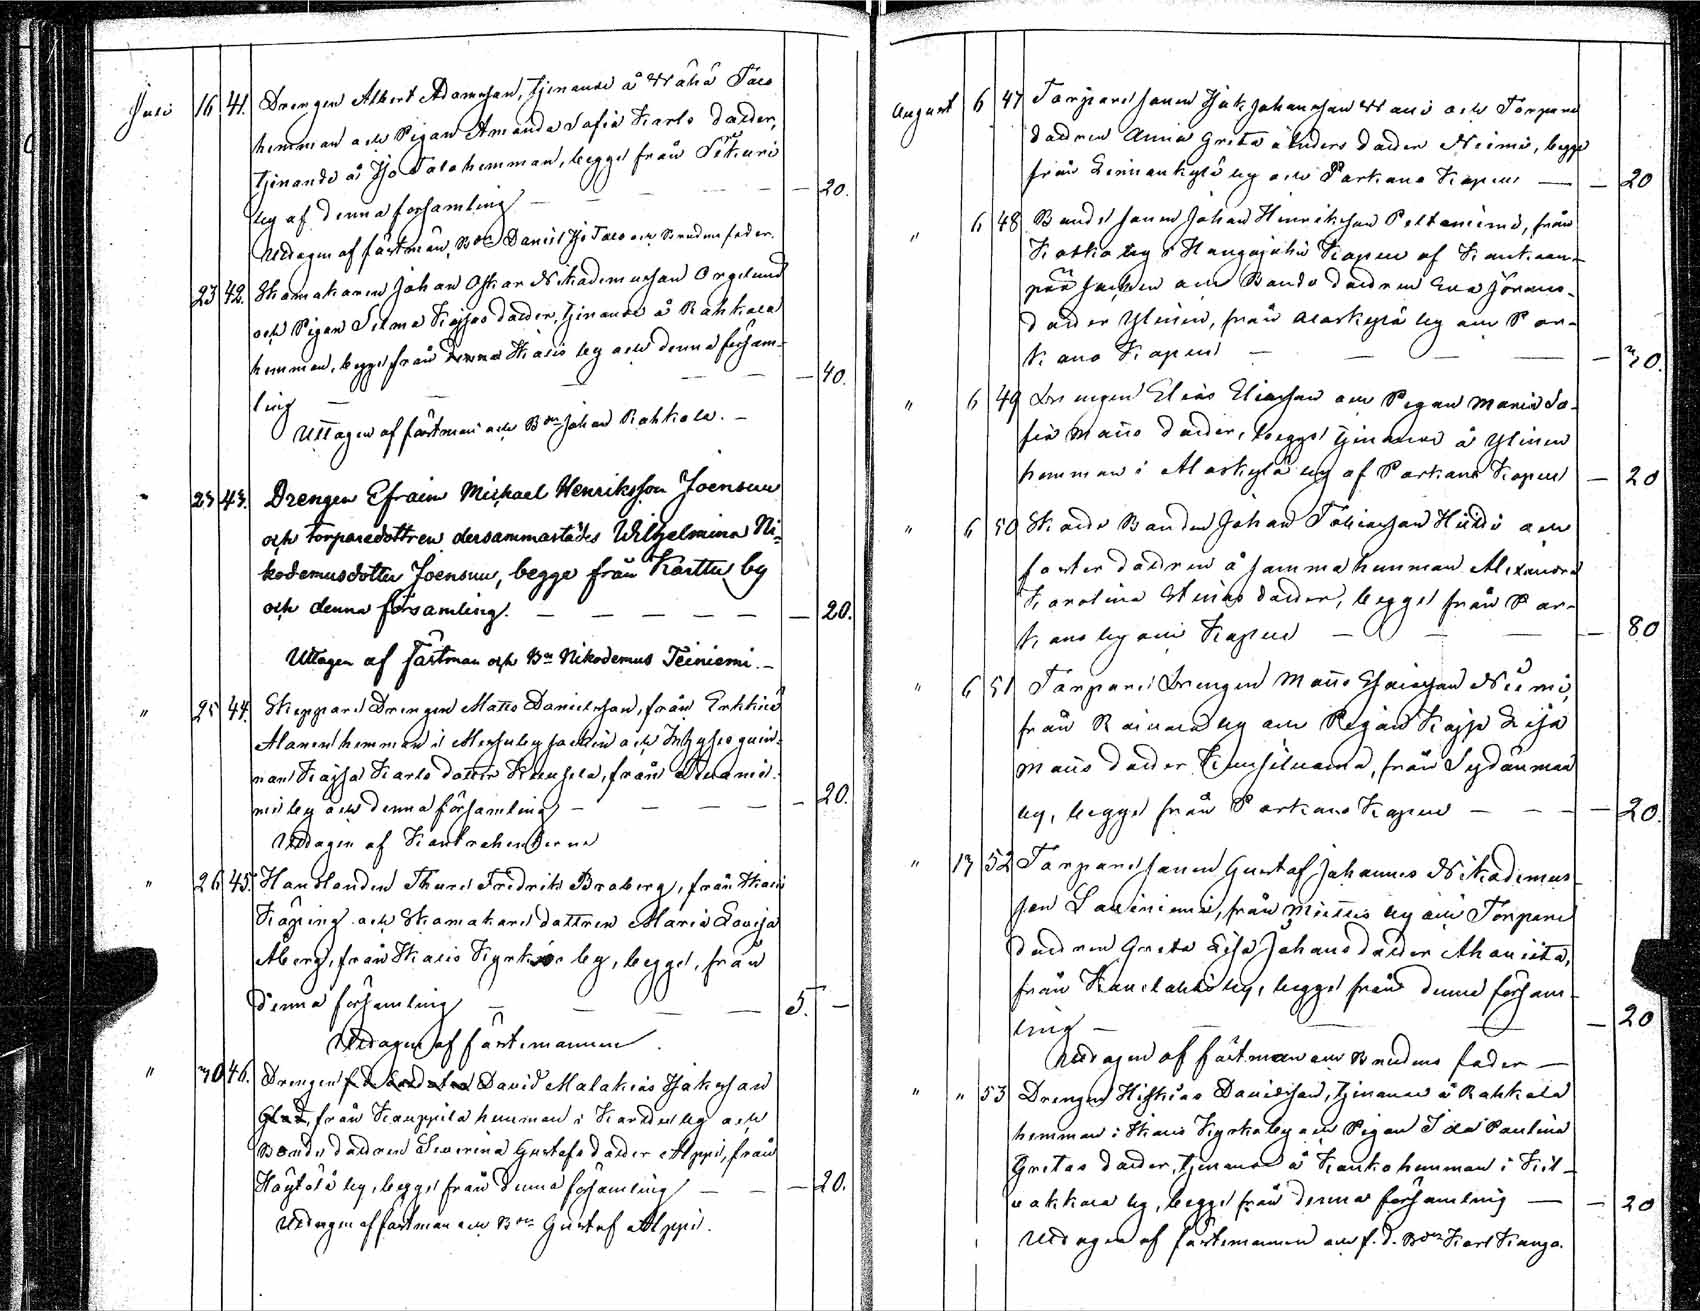 Juli 16 41. Drengen Albert Adamsson, tjenande å Wähä Talo
hemman och Pigan Amanda Sofia Karls dotter,
tjenande å Iso Talo hemman, begge från
by af denna församling — — — 20.
Uttagen af fästman, Bdn Daniel Iso Talo och Brudens fader.
23 42. Skomakaren Johan Oskar Nikodemusson Orgelund
och Pigan Selma Kajsas dotter, tjenande å Rahkola
hemman, begge från Ikalis by och denna försam-
ling — — — 40.
Uttagen af fästman och Bdn Johan Rahkola. —
" 23 43. Drengen Efraim Michael Henriksson Joensuu
och torparedottren dersammastädes Wilhelmina Ni-
kodemusdotter Joensuu, begge från Kartto by
och denna församling. — — — — — 20.
Uttagen af fästman och Bn Nikodemus Teiniemi. —
" 25 44. Skeppare Drengen Matts Danielsson, från Erkkilä
hemman i och Inhyses quin-
nan Kajsa Karls dotter från
by och denna församling — — — — 20.
Uttagen af Kontrahenterne
" 26 45. Handlanden Thure Fredrik Broberg, från Ikalis
Köping och Skomakare dottren Maria Lovisa
Åberg, från Ikalis Kyrko by, begge, från
denna församling — — — — 5. —
Uttagen af fästemannen.
" 30 46. Drengen David Malakias Isaksson
från Kauppila hemman i Kartto by och
Bonde dottren Severina Gustafs dotter Alppi, från
Höytölä by, begge från denna församling — — 20.
Uttagen af fästman och Bdn Gustaf Alppi.
August 6 47 Torpare sonen Isak Johansson och Torpare
dottren Anna Greta Anders dotter Niemi, begge
från Linnankylä by och Parkano Kapell — — 20
" 6 48 Bonde sonen Johan Henriksson Peltoniemi, från
Koska by i Hongojoki Kapell af Kankaan-
pää socken och Bonde dottren Eva Jörans-
dotter Ylinen, från Alaskylä by och Par-
kano Kapell — — — — 20.
" 6 49 Drengen Elias Eliasson och Pigan Maria So-
fia Matts dotter, begge tjenande å Ylinen
hemman i Alaskylä by af Parkano Kapell — 20
" 6 50 Bonden Johan Tobiasson och
foster dottren å samma hemman Alexandra
Karolina dotter, begge från Par-
kano by och Kapell — — — — 80
" 6 51 Torpare Drengen Matts Esaiasson Niemi,
från by och Pigan Kajsa Lisa
Matts dotter från Sydänmaa
by, begge från Parkano Kapell — — — — 20.
" 13 52 Torpare sonen Gustaf Johannes Nikodemus-
son från Miettis by och Torpare
dottren Greta Lisa Johans dotter
från by, begge från denna försam-
ling — — — — 20
Uttagen af fästman och Brudens fader —
" " 53 Drengen Hiskias Davidsson, tjenande å Rahkola
hemman i Ikalis Kyrko by och Pigan Ida Paulina
Gretas dotter, tjenande å hemman i Kil-
vakkala by, begge från denna församling — — 20
Uttagen af fästemannen och f.d. Bdn Karl